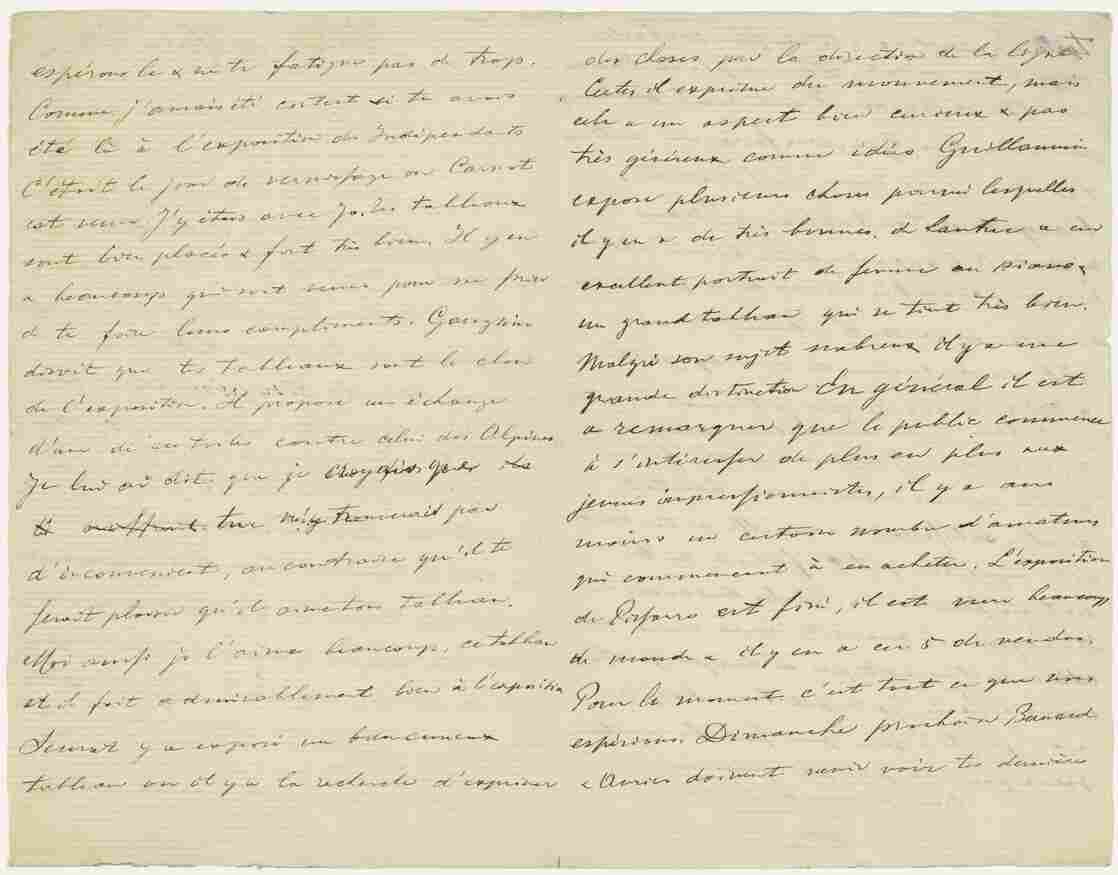 espérons le & ne te fatigue pas de trop.
Comme j'aurais été content si tu avais
été là à l'exposition des Indépendants
C'était le jour de vernissage où Carnot
est venu. J'y étais avec Jo. tes tableaux
sont bien placés & font très bien. Il y en
a beaucoup qui sont venus pour me prier
de te faire leurs compliments. Gauguin
disait que tes tableaux sont le clou
de l'exposition. Il propose un échange
d'une de ses toiles contre celui des Alpines
Je lui ai dit que je croyais que
tu n'y trouverais pas
d'inconvenient, au contraire qu'il te
ferait plaisir qu'il aime ton tableau.
Moi aussi je l'aime beaucoup, ce tableau
et il fait admirablement bien à l'exposition
Seurat y a exposé un bien curieux
tableau où il y a la recherche d'exprimer
des choses par la direction de la ligne
Certes il exprime du mouvement, mais
cela a un aspect bien curieux & pas
très généreux comme idées. Guillaumin
expose plusieurs choses parmi lesquelles
il y en a de très bonnes. de Lautrec a un
excellent portrait de femme au piano &
un grand tableau qui se tient très bien.
Malgré son sujet scabreux il y a une
grande distinction En général il est
a remarquer que le public commence
à s'intéresser de plus en plus aux
jeunes impressionnistes, il y a au
moins un certain nombre d'amateurs
qui commencent à en acheter. L'exposition
de Pissarro est fini, il est venu beaucoup
de monde & il y en a eu 5 de vendus.
Pour le moment c'est tout ce que nous
espérions. Dimanche prochain Bernard
& Aurier doivent venir voir tes dernières